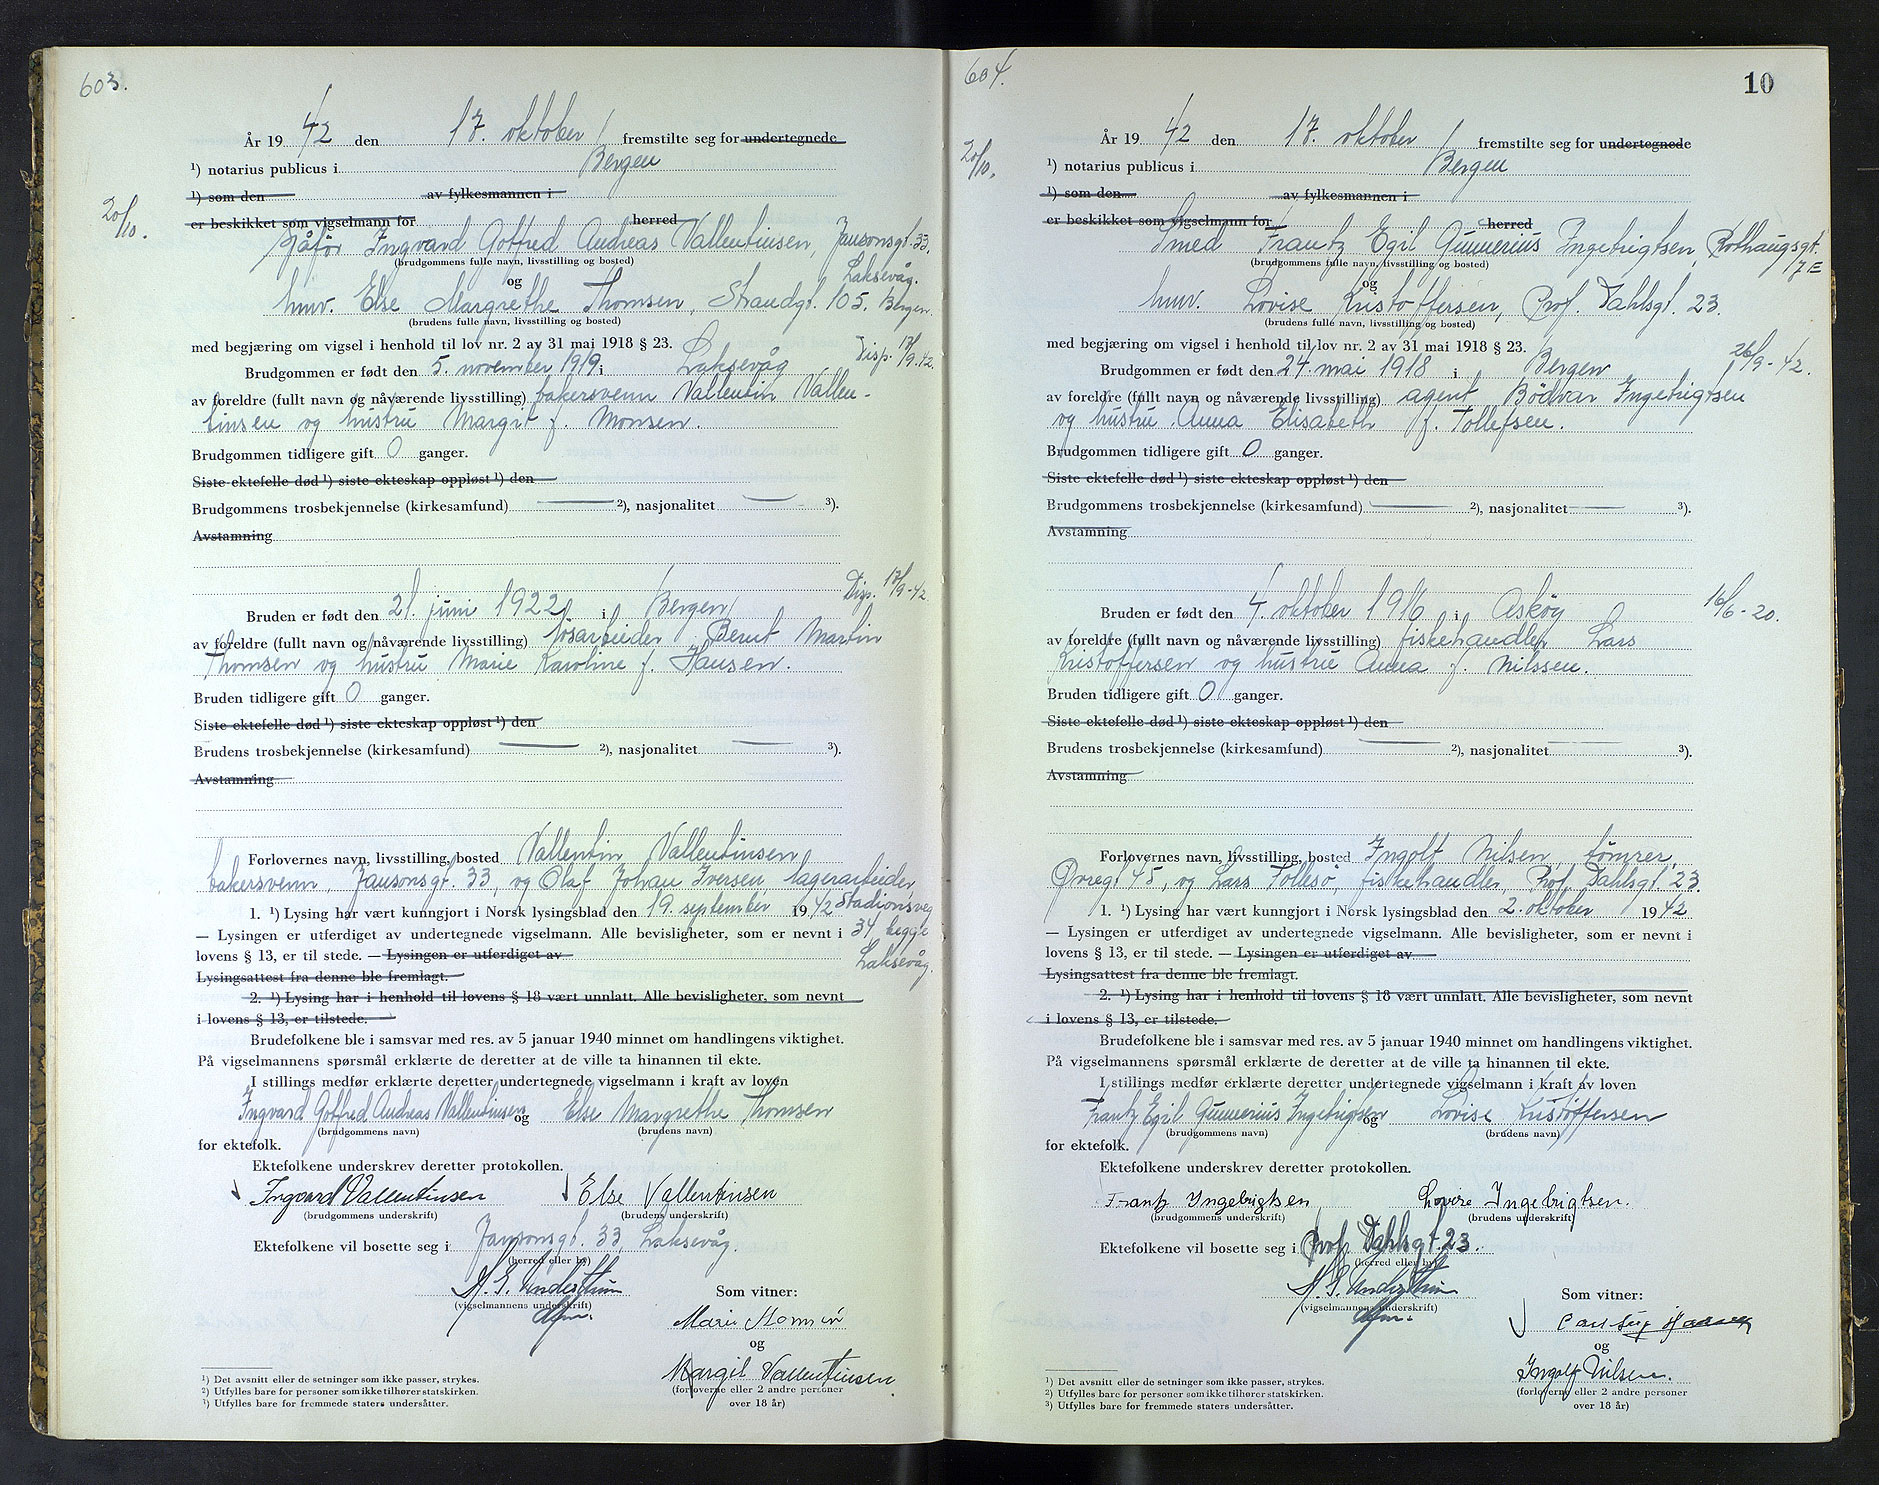 603.
År 19 42 den 17. oktober fremstilte seg for undertegnede
¹) notarius publicus i Bergen
¹) som den av fylkesmannen i
20/10.
er beskikket som vigselmann for herred
Sjåfør Ingvard Gotfred Andreas Vallentinsen, Jansonsgt. 33,
(brudgommens fulle navn, livsstilling og bosted)
Laksevåg.
og
hmv. Else Margrethe Thomsen, Strandgt. 105, Bergen.
(brudens fulle navn, livsstilling og bosted)
med begjæring om vigsel i henhold til lov nr. 2 av 31 mai 1918 § 23.
Disp. 17/9.42.
Brudgommen er født den 5. november 1919 i Laksevåg
av foreldre (fullt navn og nåværende livsstilling) bakersvenn Vallentin Vallen-
tinsen og hustru Margit f. Monsen.
Brudgommen tidligere gift 0 ganger.
Siste ektefelle død ¹) siste ekteskap oppløst ¹) den
Brudgommens trosbekjennelse (kirkesamfund) ²), nasjonalitet ³).
Avstamning
Disp. 17/9-42.
Bruden er født den 21. juni 1922 i Bergen
av foreldre (fullt navn og nåværende livsstilling) løsarbeider Bernt Martin
Thomsen og hustru Marie Karoline f. Hansen.
Bruden tidligere gift 0 ganger.
Siste ektefelle død ¹) siste ekteskap oppløst ¹) den
Brudens trosbekjennelse (kirkesamfund) ²), nasjonalitet ³).
Avstamning
Forlovernes navn, livsstilling, bosted Vallentin Vallentinsen,
bakersvenn, Jansonsgt. 33, og Olaf Johan Iversen, lagerarbeider,
1. ¹) Lysing har vært kunngjort i Norsk lysingsblad den 19. september 1942 Stadionsveg
— Lysingen er utferdiget av undertegnede vigselmann. Alle bevisligheter, som er nevnt i 34, begge
lovens § 13, er til stede. — Lysingen er utferdiget av Laksevåg.
Lysingsattest fra denne ble fremlagt.
2. ¹) Lysing har i henhold til lovens § 18 vært unnlatt. Alle bevisligheter, som nevnt
i lovens § 13, er tilstede.
Brudefolkene ble i samsvar med res. av 5 januar 1940 minnet om handlingens viktighet.
På vigselmannens spørsmål erklærte de deretter at de ville ta hinannen til ekte.
I stillings medfør erklærte deretter undertegnede vigselmann i kraft av loven
Ingvard Gotfred Andreas Vallentinsen og Else Margrethe Thomsen
(brudgommens navn) (brudens navn)
for ektefolk.
Ektefolkene underskrev deretter protokollen.
Ingvard Vallentinsen Else Vallentinsen
(brudgommens underskrift) (brudens underskrift)
Ektefolkene vil bosette seg i Jansonsgt. 33, Laksevåg.
(herred eller by)
(vigselmannens underskrift)
Som vitner:
og
Margit Vallentinsen
(forloverne eller 2 andre personer
over 18 år)
¹) Det avsnitt eller de setninger som ikke passer, strykes.
²) Utfylles bare for personer som ikke tilhører statskirken.
³) Utfylles bare for fremmede staters undersåtter.
604.
10
År 19 42 den 17. oktober fremstilte seg for undertegnede
20/10.
¹) notarius publicus i Bergen
¹) som den av fylkesmannen i
er beskikket som vigselmann for herred
Smed Frantz Egil Gunnerius Ingebrigtsen, Rothaugsgt.
(brudgommens fulle navn, livsstilling og bosted)
7E
og
hmv. Lovise Kristoffersen, Prof. Dahlsgt. 23.
(brudens fulle navn, livsstilling og bosted)
med begjæring om vigsel i henhold til lov nr. 2 av 31 mai 1918 § 23.
26/9-42.
Brudgommen er født den 24. mai 1918 i Bergen
av foreldre (fullt navn og nåværende livsstilling) agent Bödvar Ingebrigtsen
og hustru Anna Elisabeth f. Tollefsen.
Brudgommen tidligere gift 0 ganger.
Siste ektefelle død ¹) siste ekteskap oppløst ¹) den
Brudgommens trosbekjennelse (kirkesamfund) ²), nasjonalitet ³).
Avstamning
16/6-20.
Bruden er født den 4. oktober 1916 i Askøy
av foreldre (fullt navn og nåværende livsstilling) fiskehandler Lars
Kristoffersen og hustru Anna f. Nilssen.
Bruden tidligere gift 0 ganger.
Siste ektefelle død ¹) siste ekteskap oppløst ¹) den
Brudens trosbekjennelse (kirkesamfund) ²), nasjonalitet ³).
Avstamning
Forlovernes navn, livsstilling, bosted Ingolf Nilsen, tømrer,
Øvregt. 45, og Lars Follesø, fiskehandler, Prof. Dahlsgt. 23.
1. ¹) Lysing har vært kunngjort i Norsk lysingsblad den 2. oktober 1942
— Lysingen er utferdiget av undertegnede vigselmann. Alle bevisligheter, som er nevnt i
lovens § 13, er til stede. — Lysingen er utferdiget av
Lysingsattest fra denne ble fremlagt.
2. ¹) Lysing har i henhold til lovens § 18 vært unnlatt. Alle bevisligheter, som nevnt
i lovens § 13, er tilstede.
Brudefolkene ble i samsvar med res. av 5 januar 1940 minnet om handlingens viktighet.
På vigselmannens spørsmål erklærte de deretter at de ville ta hinannen til ekte.
I stillings medfør erklærte deretter undertegnede vigselmann i kraft av loven
Frantz Egil Gunnerius Ingebrigtsen og Lovise Kristoffersen
(brudgommens navn) (brudens navn)
for ektefolk.
Ektefolkene underskrev deretter protokollen.
Frantz Ingebrigtsen Lovise Ingebrigtsen.
(brudgommens underskrift) (brudens underskrift)
Ektefolkene vil bosette seg i Prof. Dahlsgt. 23.
(herred eller by)
(vigselmannens underskrift)
Som vitner:
og
Ingolf Nilsen.
(forloverne eller 2 andre personer
over 18 år)
¹) Det avsnitt eller de setninger som ikke passer, strykes.
²) Utfylles bare for personer som ikke tilhører statskirken.
³) Utfylles bare for fremmede staters undersåtter.